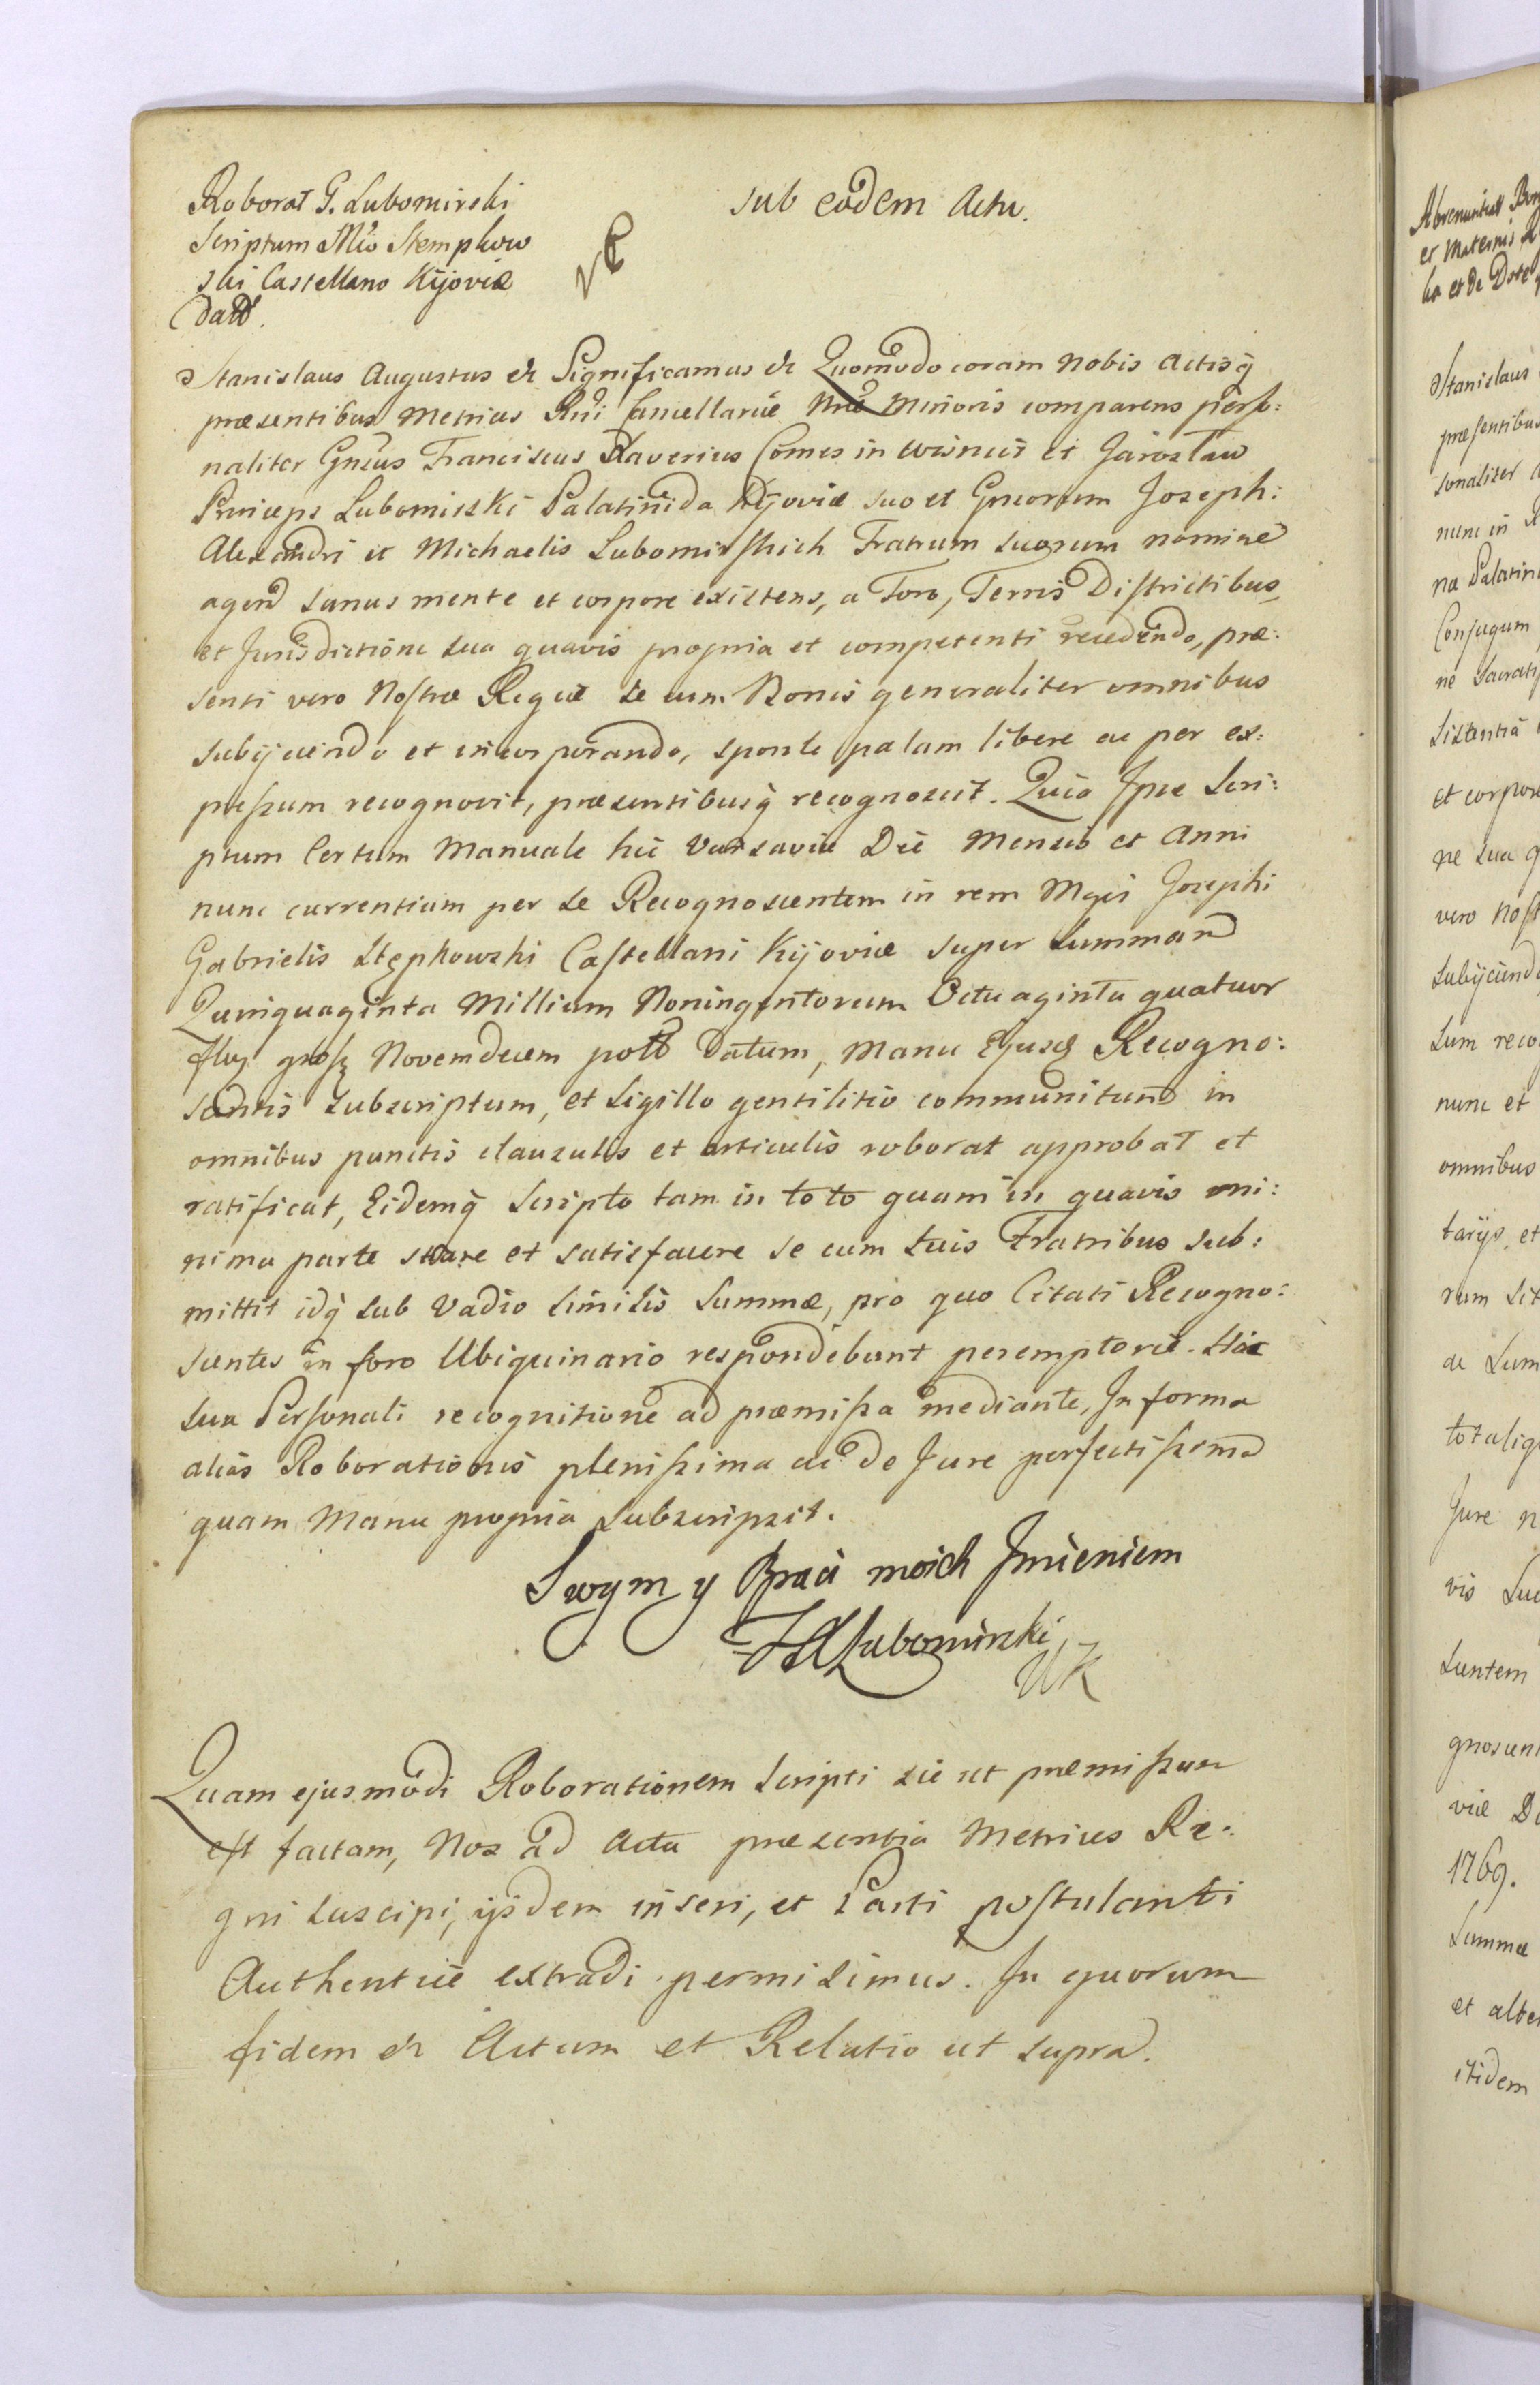 Roborat G. Lubomirski
Scriptum Mco Stempkow
ski Castellano Kijoviæ
datt.
sub eodem Actu.
Stanislaus Augustus etc Significamus etc Quomodo coram Nobis Actisq̃
præsentibus Metrices Rni Cancellariæ Nræ Minoris comparens perso:
naliter Gnsus Franciscus Xaverius Comes in Wisnicz et Jarosław
Princeps Lubomirski Palatinida Kijoviæ suo et Gnsorum Joseph:
Alexandri et Michaelis Lubomirskich Fratrum suorum nomine
agend sanus mente et corpore existens, a Foro, Terris Districtibus,
et Jurisdictione sua quavis propria et competenti recedendo, præ:
senti vero Nostræ Regiæ se cum Bonis generaliter omnibus
subijciendo et incorporando, sponte palam libere ac per ex:
pressum recognovit, præsentibusq̃ recognoscit. Quia Ipse Scri:
ptum Certum Manuale hic Varsaviæ Die Mensis et Anni
nunc currentium per se Recognoscentem in rem Mgci Josephi
Gabrielis Stępkowski Castellani Kijoviæ super summam
Quinquaginta Millium Noningentorum Octuaginta quatuor
flor grosz Novemdecem poll Datum, Manu Ejusd Recogno:
scentis subscriptum, et Sigillo gentilitio communitum in
omnibus punctis clausulis et articulis roborat approbat et
ratificat, Eidemq̃ Scripto tam in toto quam in quavis mi:
nima parte stare et satisfacere se cum suis Fratribus sub:
mittit idq̃ sub Vadio similis Summæ, pro quo Citati Recogno:
scentes in foro Ubiquinario respondebunt peremptorie. Hac
sua Personali recognitione ad præmissa mediante, In forma
alias Roborationis plenissima ac de Jure perfectissima
quam Manu propria subscripsit.
Swym y Braci moich Imieniem
FXLubomirski
WK
Quam ejusmodi Roborationem Scripti sic ut præmissum
est factam, Nos ad Acta præsentia Metrices Re:
gni suscipi, ijsdem inseri, et Parti postulanti
Authentice extradi permisimus. In quorum
fidem etc Actum et Relatio ut supra.
Stanislaus
præsentibus
sonaliter
nunc in
na Palatin
Conjugum
et corpore
ne sua
vero Nost
subijciendo
sum reco
nunc et
omnibus
tarijs, et
ac Sum
Jure n
vis
scentem
viæ D
1769.
Summæ
et alte
itidem